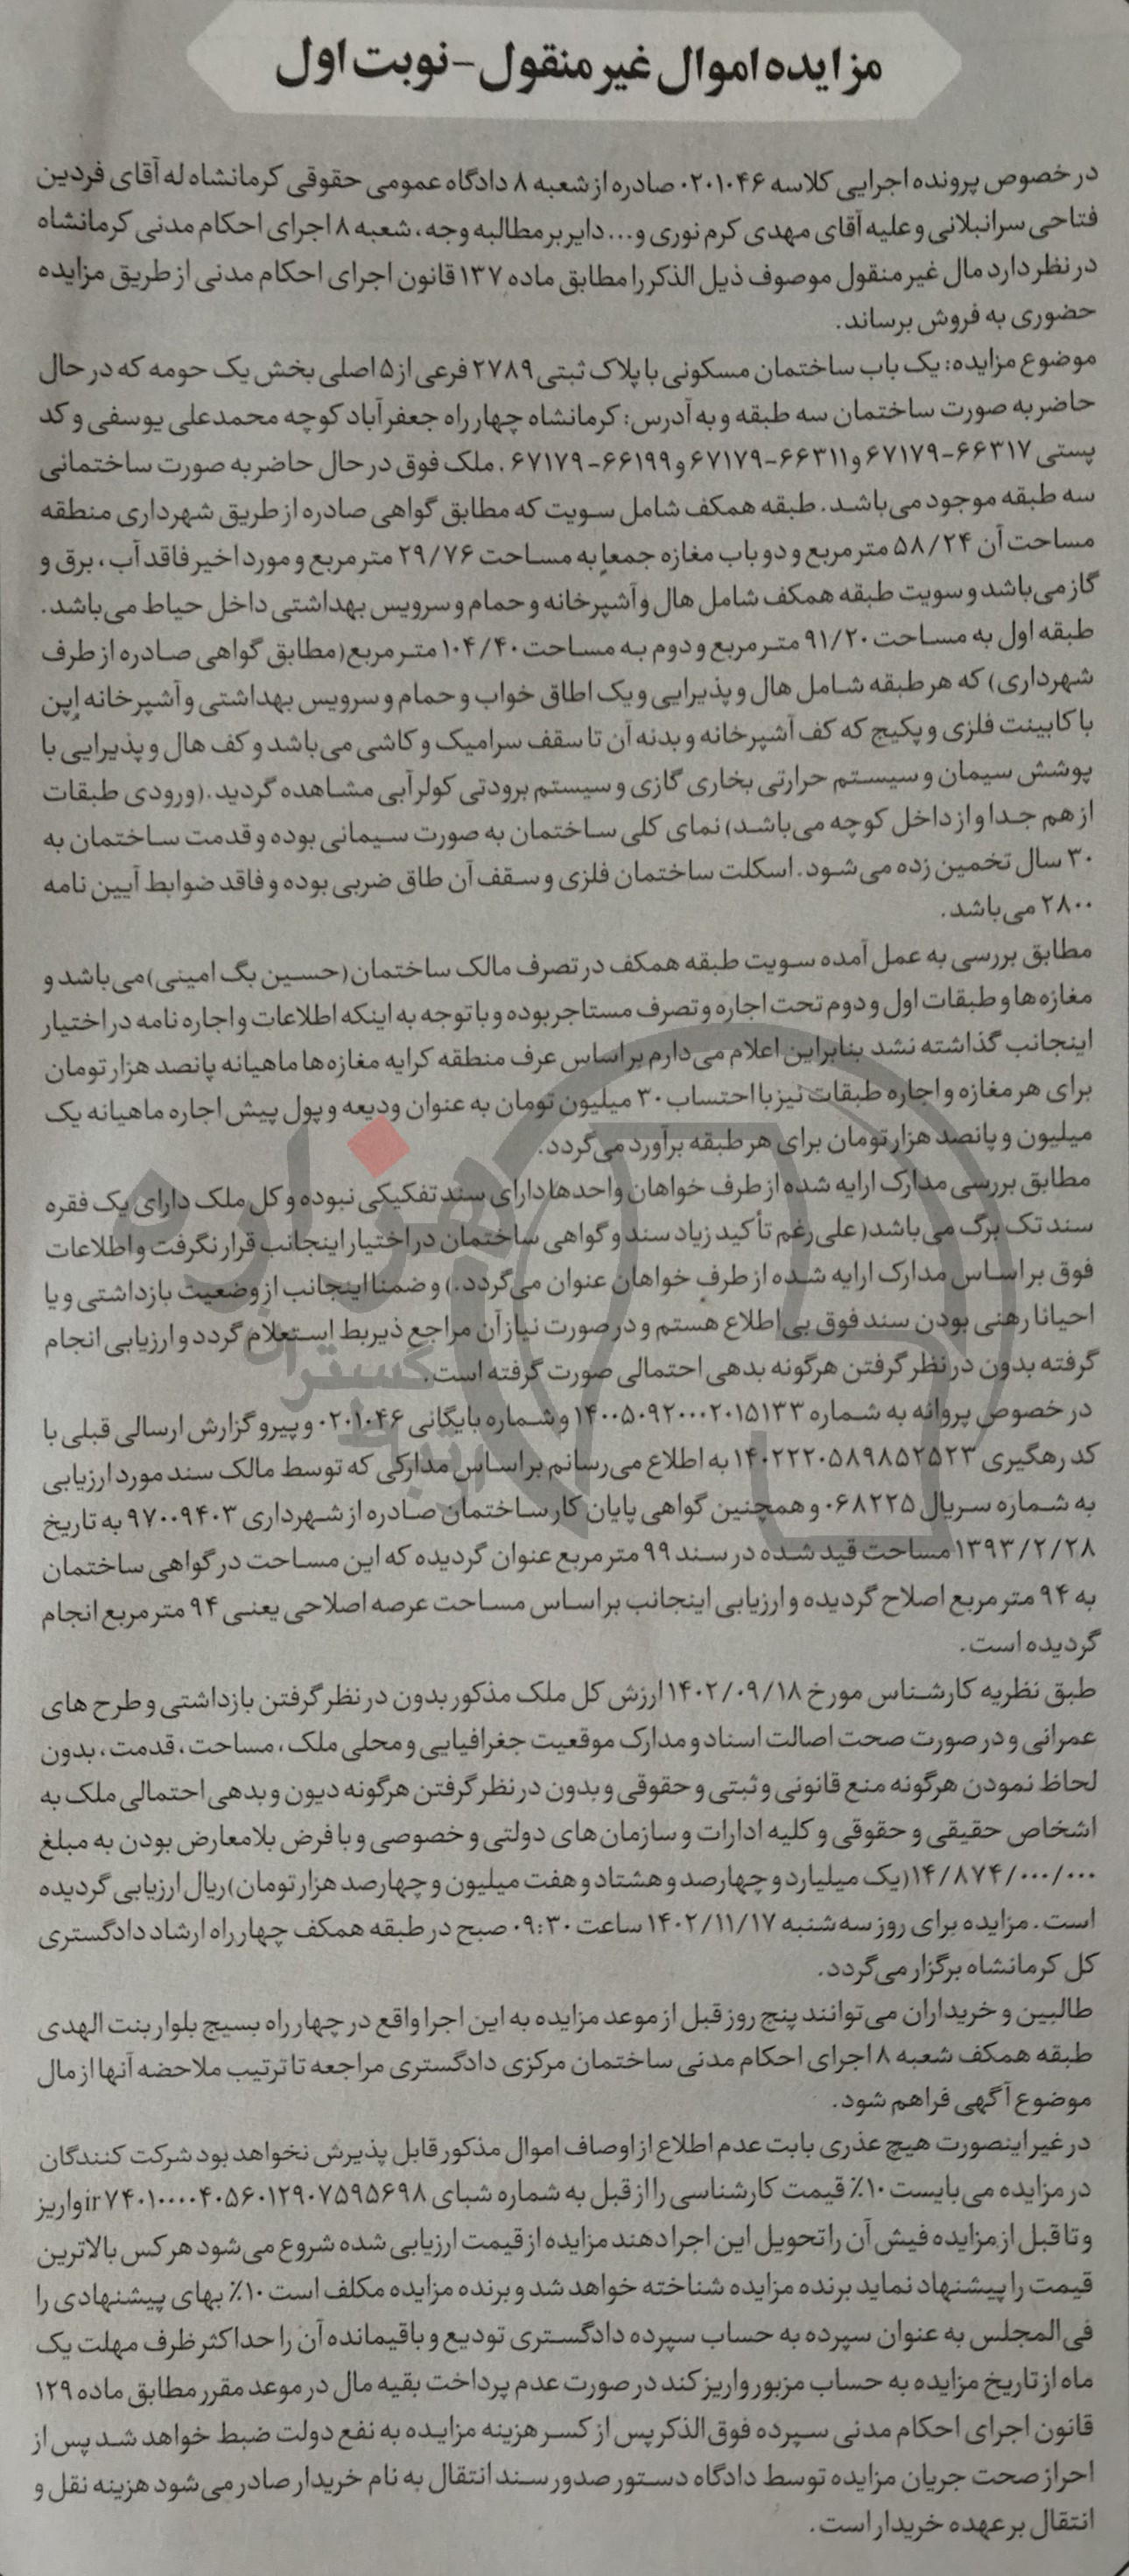 مزایده اموال غیر منقول - نوبت اول
در خصوص پرونده اجرایی کلاسه ۰۲۰۱۰۴۶ صادره از شعبه ۸ دادگاه عمومی حقوقی کرمانشاه له آقای فردین
فتاحی سرانبلانی و علیه آقای مهدی کرم نوری و... دایر بر مطالبه وجه، شعبه ۸ اجرای احکام مدنی کرمانشاه
در نظر دارد مال غیر منقول موصوف ذیل الذکر را مطابق ماده ۱۳۷ قانون اجرای احکام مدنی از طریق مزایده
حضوری به فروش برساند.
موضوع مزایده: یک باب ساختمان مسکونی با پلاک ثبتی ۲۷۸۹ فرعی از ۵ اصلی بخش یک حومه که در حال
حاضر به صورت ساختمان سه طبقه و به آدرس: کرمانشاه چهار راه جعفرآباد کوچه محمدعلی یوسفی و کد
پستی ۶۶۳۱۷-۶۷۱۷۹ و ۶۶۳۱۱-۶۷۱۷۹ و ۶۶۱۹۹-۶۷۱۷۹. ملک فوق در حال حاضر به صورت ساختمانی
سه طبقه موجود می‌باشد. طبقه همکف شامل سویت که مطابق گواهی صادره از طریق شهرداری منطقه
مساحت آن ۵۸/۲۴ متر مربع و دو باب مغازه جمعاً به مساحت ۲۹/۷۶ متر مربع و مورد اخیر فاقد آب، برق و
گاز می‌باشد و سویت طبقه همکف شامل هال و آشپرخانه و حمام و سرویس بهداشتی داخل حیاط می‌باشد.
طبقه اول به مساحت ۹۱/۲۰ متر مربع و دوم به مساحت ۱۰۴/۴۰ متر مربع (مطابق گواهی صادره از طرف
شهرداری) که هر طبقه شامل هال و پذیرایی و یک اطاق خواب و حمام و سرویس بهداشتی و آشپرخانه اپن
با کابینت فلزی و پکیج که کف آشپرخانه و بدنه آن تا سقف سرامیک و کاشی می‌باشد و کف هال و پذیرایی با
پوشش سیمان و سیستم حرارتی بخاری گازی و سیستم برودتی کولر آبی مشاهده گردید. (ورودی طبقات
از هم جدا و از داخل کوچه می‌باشد) نمای کلی ساختمان به صورت سیمانی بوده و قدمت ساختمان به
۳۰ سال تخمین زده می‌شود. اسکلت ساختمان فلزی و سقف آن طاق ضربی بوده و فاقد ضوابط آیین نامه
۲۸۰۰ می‌باشد.
مطابق بررسی به عمل آمده سویت طبقه همکف در تصرف مالک ساختمان (حسین بگ امینی) می‌باشد و
مغازه‌ها و طبقات اول و دوم تحت اجاره و تصرف مستاجر بوده و با توجه به اینکه اطلاعات و اجاره نامه در اختیار
اینجانب گذاشته نشد بنابراین اعلام می‌دارم بر اساس عرف منطقه کرایه مغازه‌ها ماهیانه پانصد هزار تومان
برای هر مغازه و اجاره طبقات نیز با احتساب ۳۰ میلیون تومان به عنوان ودیعه و پول پیش اجاره ماهیانه یک
میلیون و پانصد هزار تومان برای هر طبقه برآورد می‌گردد.
مطابق بررسی مدارک ارایه شده از طرف خواهان واحدها دارای سند تفکیکی نبوده و کل ملک دارای یک فقره
سند تک برگ می‌باشد (علی‌رغم تأکید زیاد سند و گواهی ساختمان در اختیار اینجانب قرار نگرفت و اطلاعات
فوق بر اساس مدارک ارایه شده از طرف خواهان عنوان می‌گردد.) و ضمنا اینجانب از وضعیت بازداشتی و یا
احیانا رهنی بودن سند فوق بی‌اطلاع هستم و در صورت نیاز آن مراجع ذیربط استعلام گردد و ارزیابی انجام
گرفته بدون در نظر گرفتن هرگونه بدهی احتمالی صورت گرفته است.
در خصوص پروانه به شماره ۱۴۰۰۵۰۹۲۰۰۰۲۰۱۵۱۳۳ و شماره بایگانی ۰۲۰۱۰۴۶ و پیرو گزارش ارسالی قبلی با
کد رهگیری ۱۴۰۲۲۲۰۵۸۹۸۵۲۵۲۳ به اطلاع می‌رسانم بر اساس مدارکی که توسط مالک سند مورد ارزیابی
به شماره سریال ۰۶۸۲۲۵ و همچنین گواهی پایان کار ساختمان صادره از شهرداری ۹۷۰۰۹۴۰۳ به تاریخ
۱۳۹۳/۲/۲۸ مساحت قید شده در سند ۹۹ متر مربع عنوان گردیده که این مساحت در گواهی ساختمان
به ۹۴ متر مربع اصلاح گردیده و ارزیابی اینجانب بر اساس مساحت عرصه اصلاحی یعنی ۹۴ متر مربع انجام
گردیده است.
طبق نظریه کارشناس مورخ ۱۴۰۲/۰۹/۱۸ ارزش کل ملک مذکور بدون در نظر گرفتن بازداشتی و طرح های
عمرانی و در صورت صحت اصالت اسناد و مدارک موقعیت جغرافیایی و محلی ملک، مساحت، قدمت، بدون
لحاظ نمودن هرگونه منع قانونی و ثبتی و حقوقی و بدون در نظر گرفتن هرگونه دیون و بدهی احتمالی ملک به
اشخاص حقیقی و حقوقی و کلیه ادارات و سازمان های دولتی و خصوصی و با فرض بلامعارض بودن به مبلغ
۱۴/۸۷۴/۰۰۰/۰۰۰ (یک میلیارد و چهارصد و هشتاد و هفت میلیون و چهارصد هزار تومان) ریال ارزیابی گردیده
است. مزایده برای روز سه شنبه ۱۴۰۲/۱۱/۱۷ ساعت ۰۹:۳۰ صبح در طبقه همکف چهار راه ارشاد دادگستری
کل کرمانشاه برگزار می‌گردد.
طالبین و خریداران می‌توانند پنج روز قبل از موعد مزایده به این اجرا واقع در چهار راه بسیج بلوار بنت الهدی
طبقه همکف شعبه ۸ اجرای احکام مدنی ساختمان مرکزی دادگستری مراجعه تا ترتیب ملاحضه آنها از مال
موضوع آگهی فراهم شود.
در غیر اینصورت هیچ عذری بابت عدم اطلاع از اوصاف اموال مذکور قابل پذیرش نخواهد بود شرکت کنندگان
در مزایده می‌بایست ۱۰٪ قیمت کارشناسی را از قبل به شماره شبای ir۷۴۰۱۰۰۰۰۴۰۵۶۰۱۲۹۰۷۵۹۵۶۹۸ واریز
و تا قبل از مزایده فیش آن را تحویل این اجرا دهند مزایده از قیمت ارزیابی شده شروع می‌شود هر کس بالاترین
قیمت را پیشنهاد نماید برنده مزایده شناخته خواهد شد و برنده مزایده مکلف است ۱۰٪ بهای پیشنهادی را
فی‌المجلس به عنوان سپرده به حساب سپرده دادگستری تودیع و باقیمانده آن را حداکثر ظرف مهلت یک
ماه از تاریخ مزایده به حساب مزبور واریز کند در صورت عدم پرداخت بقیه مال در موعد مقرر مطابق ماده ۱۲۹
قانون اجرای احکام مدنی سپرده فوق الذکر پس از کسر هزینه مزایده به نفع دولت ضبط خواهد شد پس از
احراز صحت جریان مزایده توسط دادگاه دستور صدور سند انتقال به نام خریدار صادر می‌شود هزینه نقل و
انتقال بر عهده خریدار است.